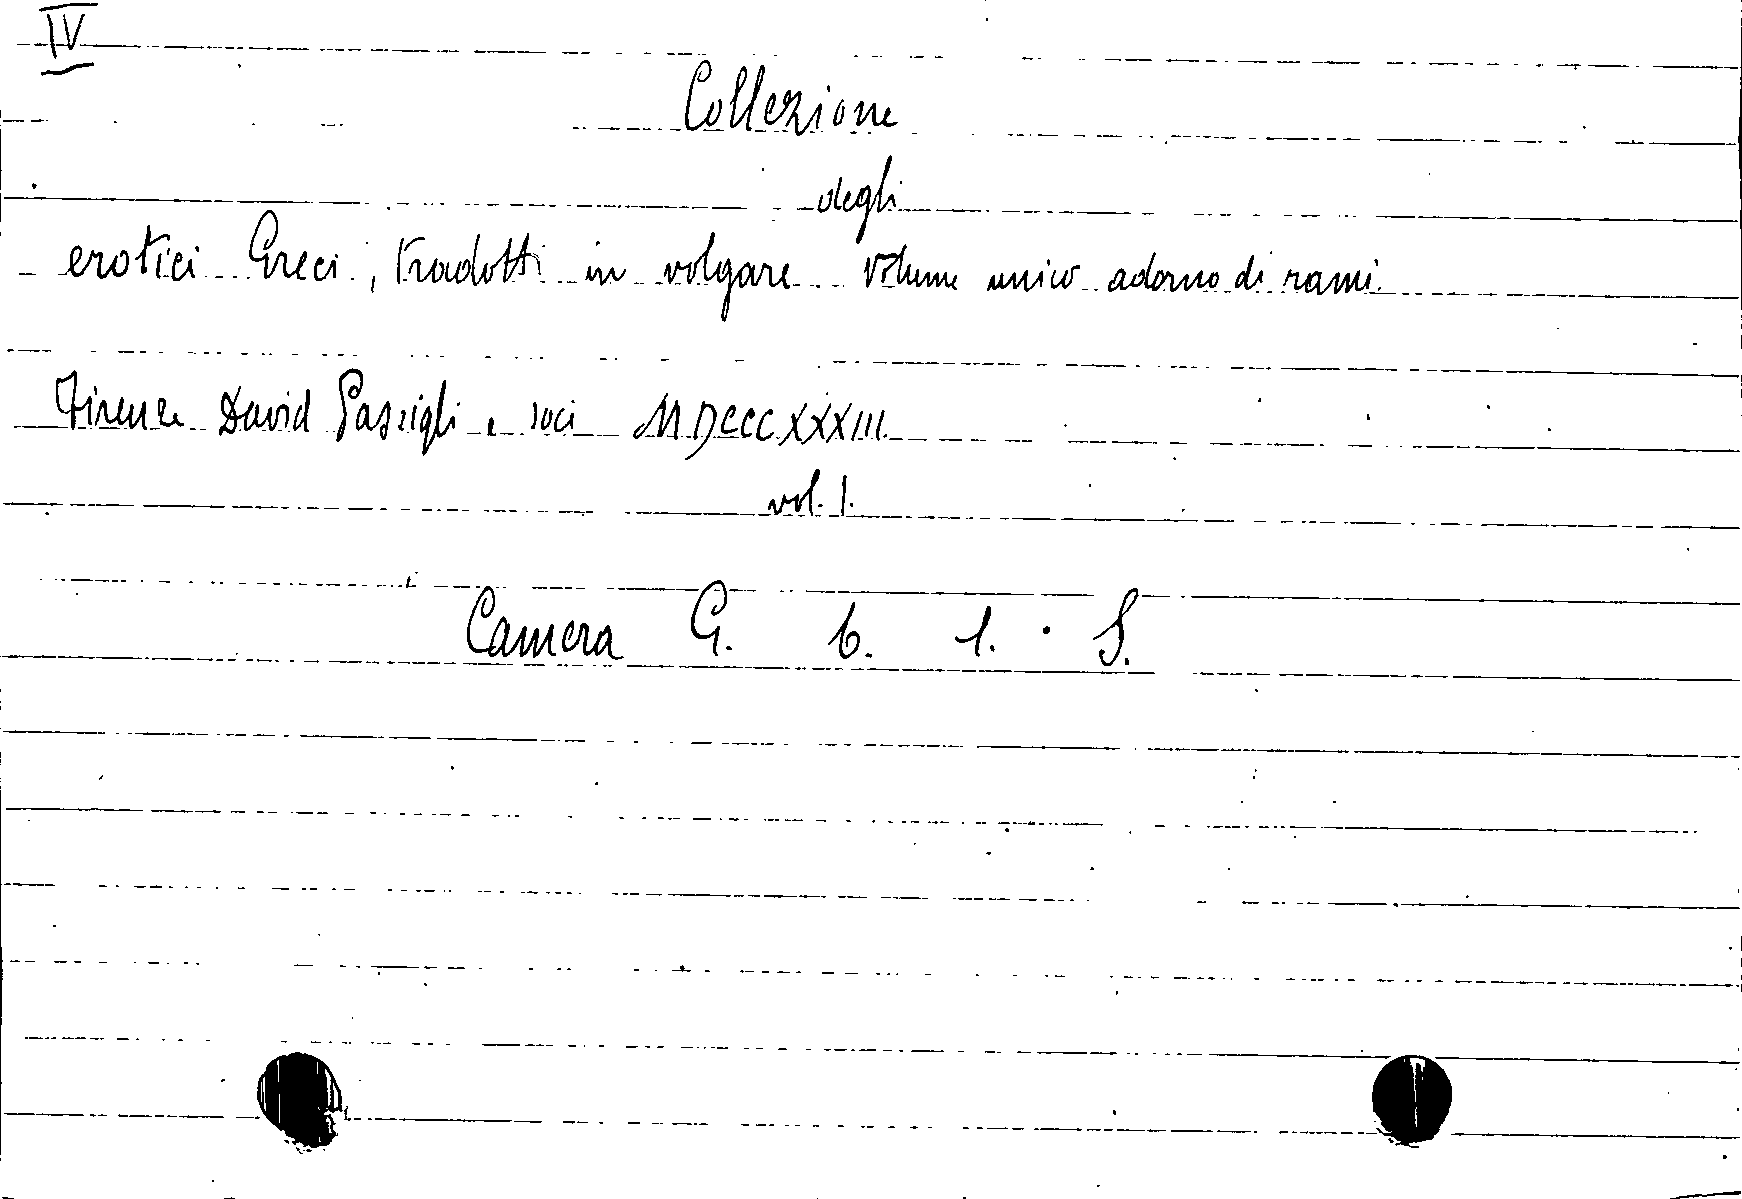 IV
Collezione
degli
erotici Greci, tradotti in volgare volume unico adorno di rami.
Firenze David Passigli e soci MDCCCXXXIII
vol. 1.
Camera G. b. 1. S.